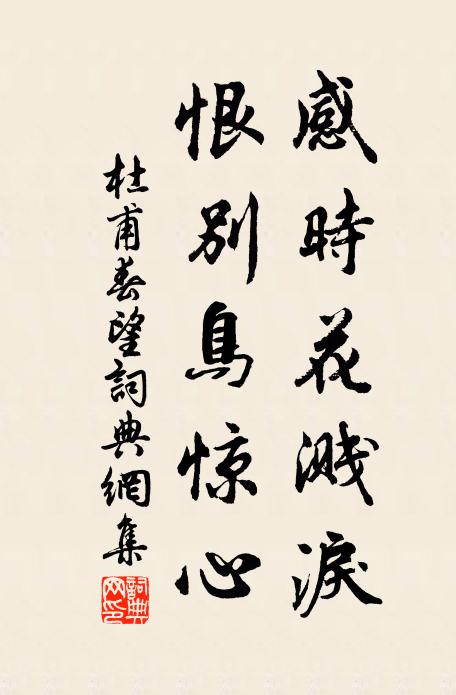 感時花溅淚
恨别鳥惊心
杜甫春望詞典網集
詞典网印